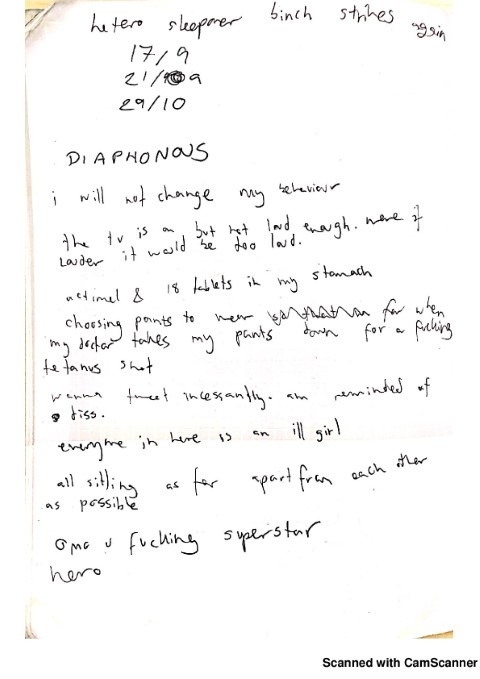 hetero sleeparer binch strikes again
17/9
21/9
29/10
DIAPHONOUS
i will not change my behaviour
the tv is on but not loud enough. were it
louder it would be too loud.
actimel & 18 tablets in my stomach
choosing pants to wear for when
my doctor takes my pants down for a fucking
tetanus shot
wanna tweet incessantly. am reminded of
diss.
everyone in here is an ill girl
all sitting as far apart from each other
as possible
omg u fucking superstar
hero
Scanned with CamScanner